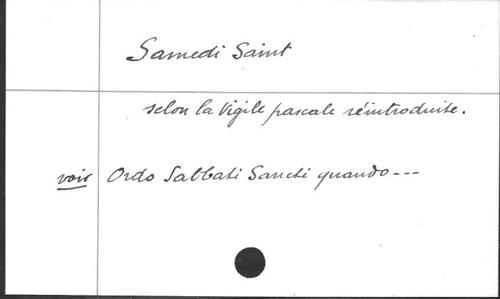 Samedi Saint
selon la Vigile pascale réintroduite.
voir Ordo Sabbati Sancti quando ---